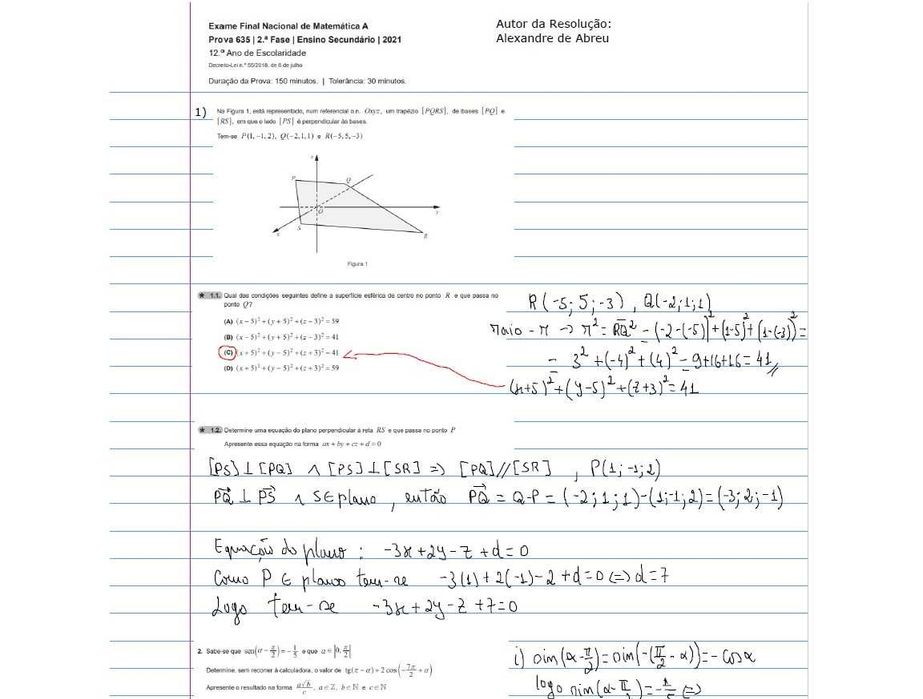 Exame Final Nacional de Matemática A
Prova 635 | 2.ª Fase | Ensino Secundário | 2021
12.º Ano de Escolaridade
Decreto-Lei n.º 55/2018, de 6 de julho
Duração da Prova: 150 minutos. | Tolerância: 30 minutos.
Autor da Resolução:
Alexandre de Abreu
1) Na Figura 1, está representado, num referencial o.n. Oxyz, um trapézio [PQRS], de bases [PQ] e
[RS], em que o lado [PS] é perpendicular às bases.
Tem-se P(1,−1,2), Q(−2,1,1) e R(−5,5,−3)
z
P
Q
O
y
S
x
R
Figura 1
★ 1.1. Qual das condições seguintes define a superfície esférica de centro no ponto R e que passa no
ponto Q?
(A) (x − 5)² + (y + 5)² + (z − 3)² = 59
(B) (x − 5)² + (y + 5)² + (z − 3)² = 41
(C) (x + 5)² + (y − 5)² + (z + 3)² = 41
(D) (x + 5)² + (y − 5)² + (z + 3)² = 59
R(-5; 5; -3), Q(-2; 1; 1)
raio - r → r² = RQ² = (-2-(-5))² + (1-5)² + (1-(-3))² =
= 3² + (-4)² + (4)² = 9+16+16 = 41
(x+5)² + (y-5)² + (z+3)² = 41
★ 1.2. Determine uma equação do plano perpendicular à reta RS e que passa no ponto P
Apresente essa equação na forma ax + by + cz + d = 0
[PS] ⊥ [PQ] ∧ [PS] ⊥ [SR] => [PQ] // [SR], P(1; -1; 2)
PQ ⊥ PS ∧ S ∈ plano, então PQ = Q-P = (-2; 1; 1)-(1; -1; 2) = (-3; 2; -1)
Equação do plano: -3x+2y-z+d=0
Como P ∈ plano tem-se -3(1)+2(-1)-2+d=0 (=) d=7
Logo tem-se -3x+2y-z+7=0
2. Sabe-se que sen(α − π/2) = −1/5 e que α ∈ ]0, π/2[
Determine, sem recorrer à calculadora, o valor de tg(π − α) + 2 cos(−7π/2 + α)
Apresente o resultado na forma a√b/c, a ∈ Z, b ∈ N e c ∈ N
i) sin(α-π/2) = sin(-(π/2-α)) = -cos α